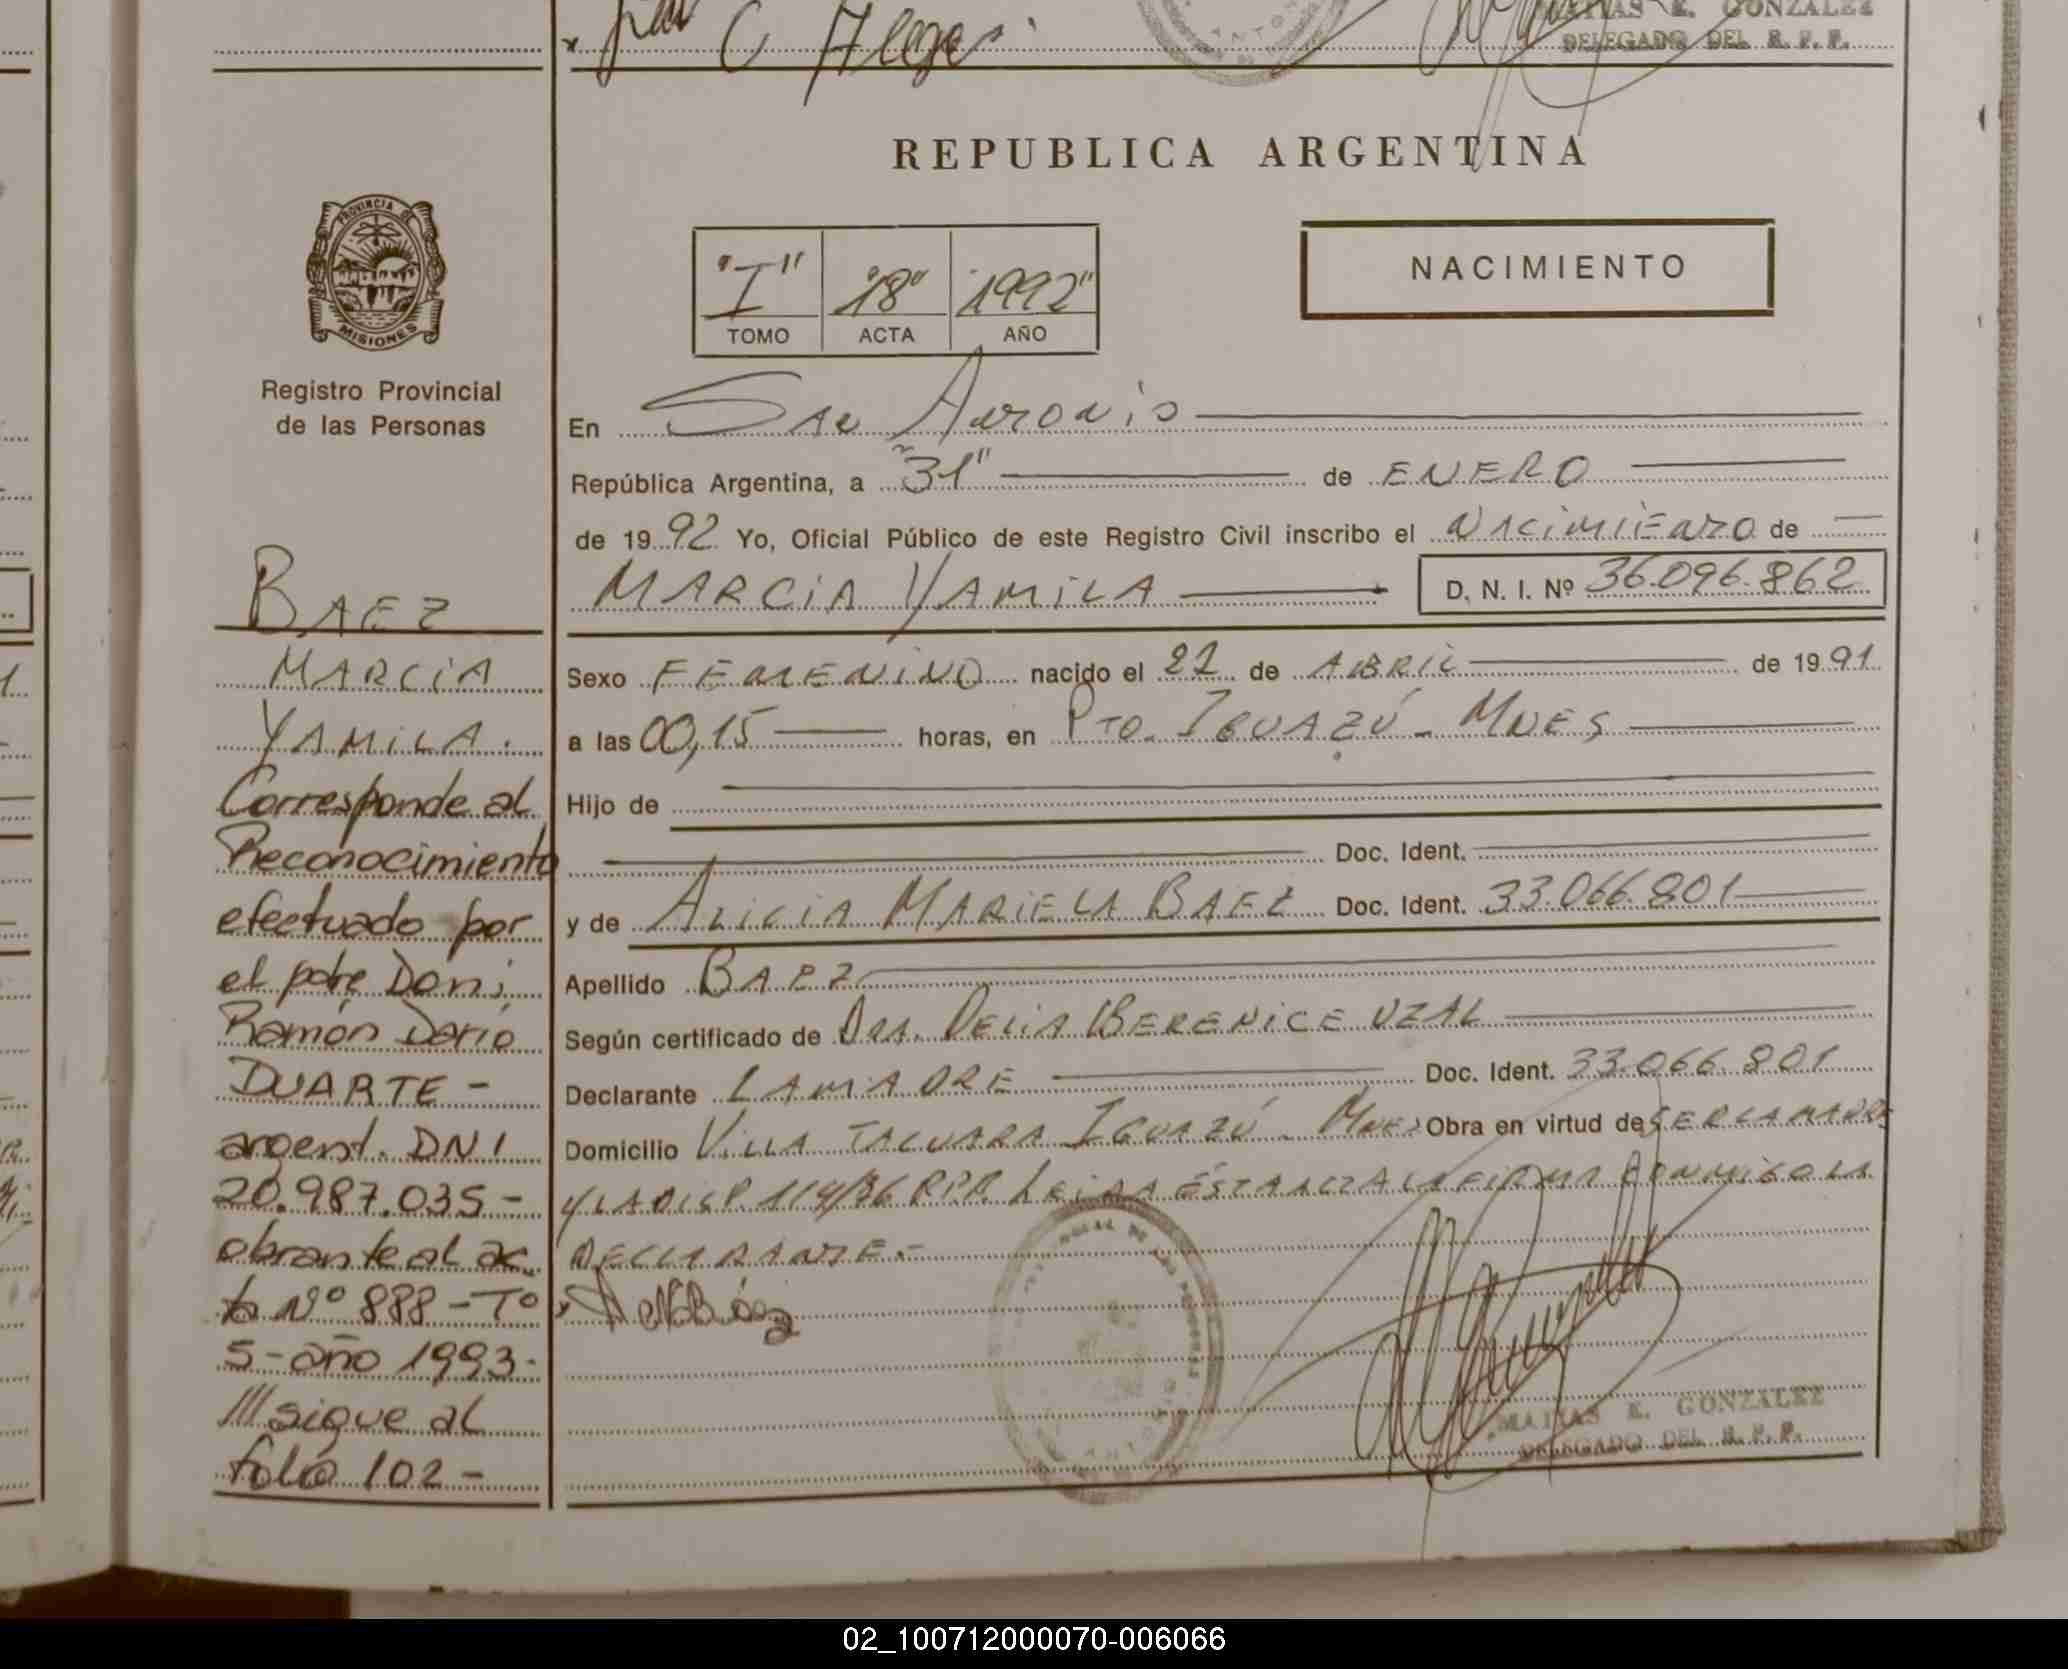 C Alegre
MATIAS E. GONZALEZ
DELEGADO DEL R. P. P.
REPUBLICA ARGENTINA
PROVINCIA DE
MISIONES
Registro Provincial
de las Personas
"I" "18" "1992"
TOMO ACTA AÑO
NACIMIENTO
En San Antonio
República Argentina, a "31" de ENERO
de 1992 Yo, Oficial Público de este Registro Civil inscribo el NACIMIENTO de
MARCIA YAMILA D. N. I. Nº 36.096.862
Sexo FEMENINO nacido el 21 de ABRIL de 1991
a las 00,15 horas, en PTO. IGUAZÚ - MNES
Hijo de
Doc. Ident.
y de ALICIA MARIELA BAEZ Doc. Ident. 33.066.801
Apellido BAEZ
Según certificado de DRA. DELIA BERENICE UZAL
Declarante LA MADRE Doc. Ident. 33.066.801
Domicilio VILLA TACUARA IGUAZÚ - MNES Obra en virtud de SER LA MADRE
Y LA DISP. 114/86 RPP. LEIDA ESTA ACTA LA FIRMA CONMIGO LA
DECLARANTE.-
MATIAS E. GONZALEZ
DELEGADO DEL R. P. P.
BAEZ
MARCIA
YAMILA.
Corresponde al
Reconocimiento
efectuado por
el padre Don:
Ramón Darío
DUARTE -
argent. DNI
20.987.035 -
obrante al ac
ta Nº 888 - Tº
5 - año 1993.
/// sigue al
folio 102 -
02_100712000070-006066